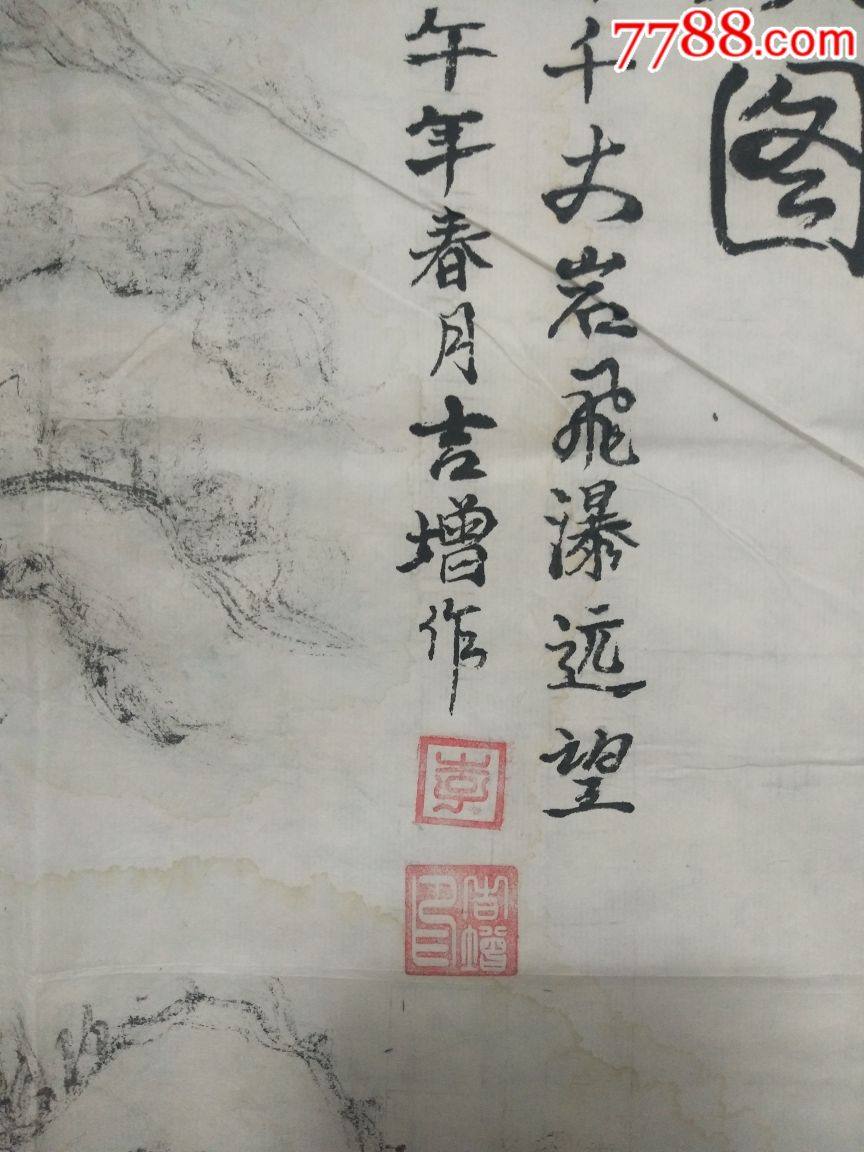 7788.com
图
千丈岩飞瀑远望
午年春月吉增作